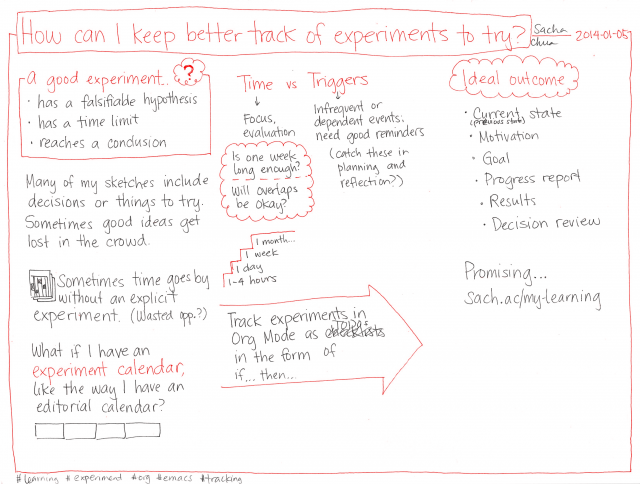 How can I keep better track of experiments to try?
Sacha Chua
2014-01-05
A good experiment...
?
• has a falsifiable hypothesis
• has a time limit
• reaches a conclusion
Many of my sketches include
decisions or things to try.
Sometimes good ideas get
lost in the crowd.
Sometimes time goes by
without an explicit
experiment. (Wasted opp.?)
What if I have an
experiment calendar,
like the way I have an
editorial calendar?
Time vs Triggers
Focus,
evaluation
Infrequent or
dependent events;
need good reminders
(catch these in
planning and
reflection?)
Is one week
long enough?
Will overlaps
be okay?
1 month...
1 week
1 day
1-4 hours
Track experiments in
Org Mode as checklists TODOs
in the form of
if... then...
Ideal outcome
• Current state
(previous state)
• Motivation
• Goal
• Progress report
• Results
• Decision review
Promising...
sach.ac/my-learning
#learning #experiment #org #emacs #tracking